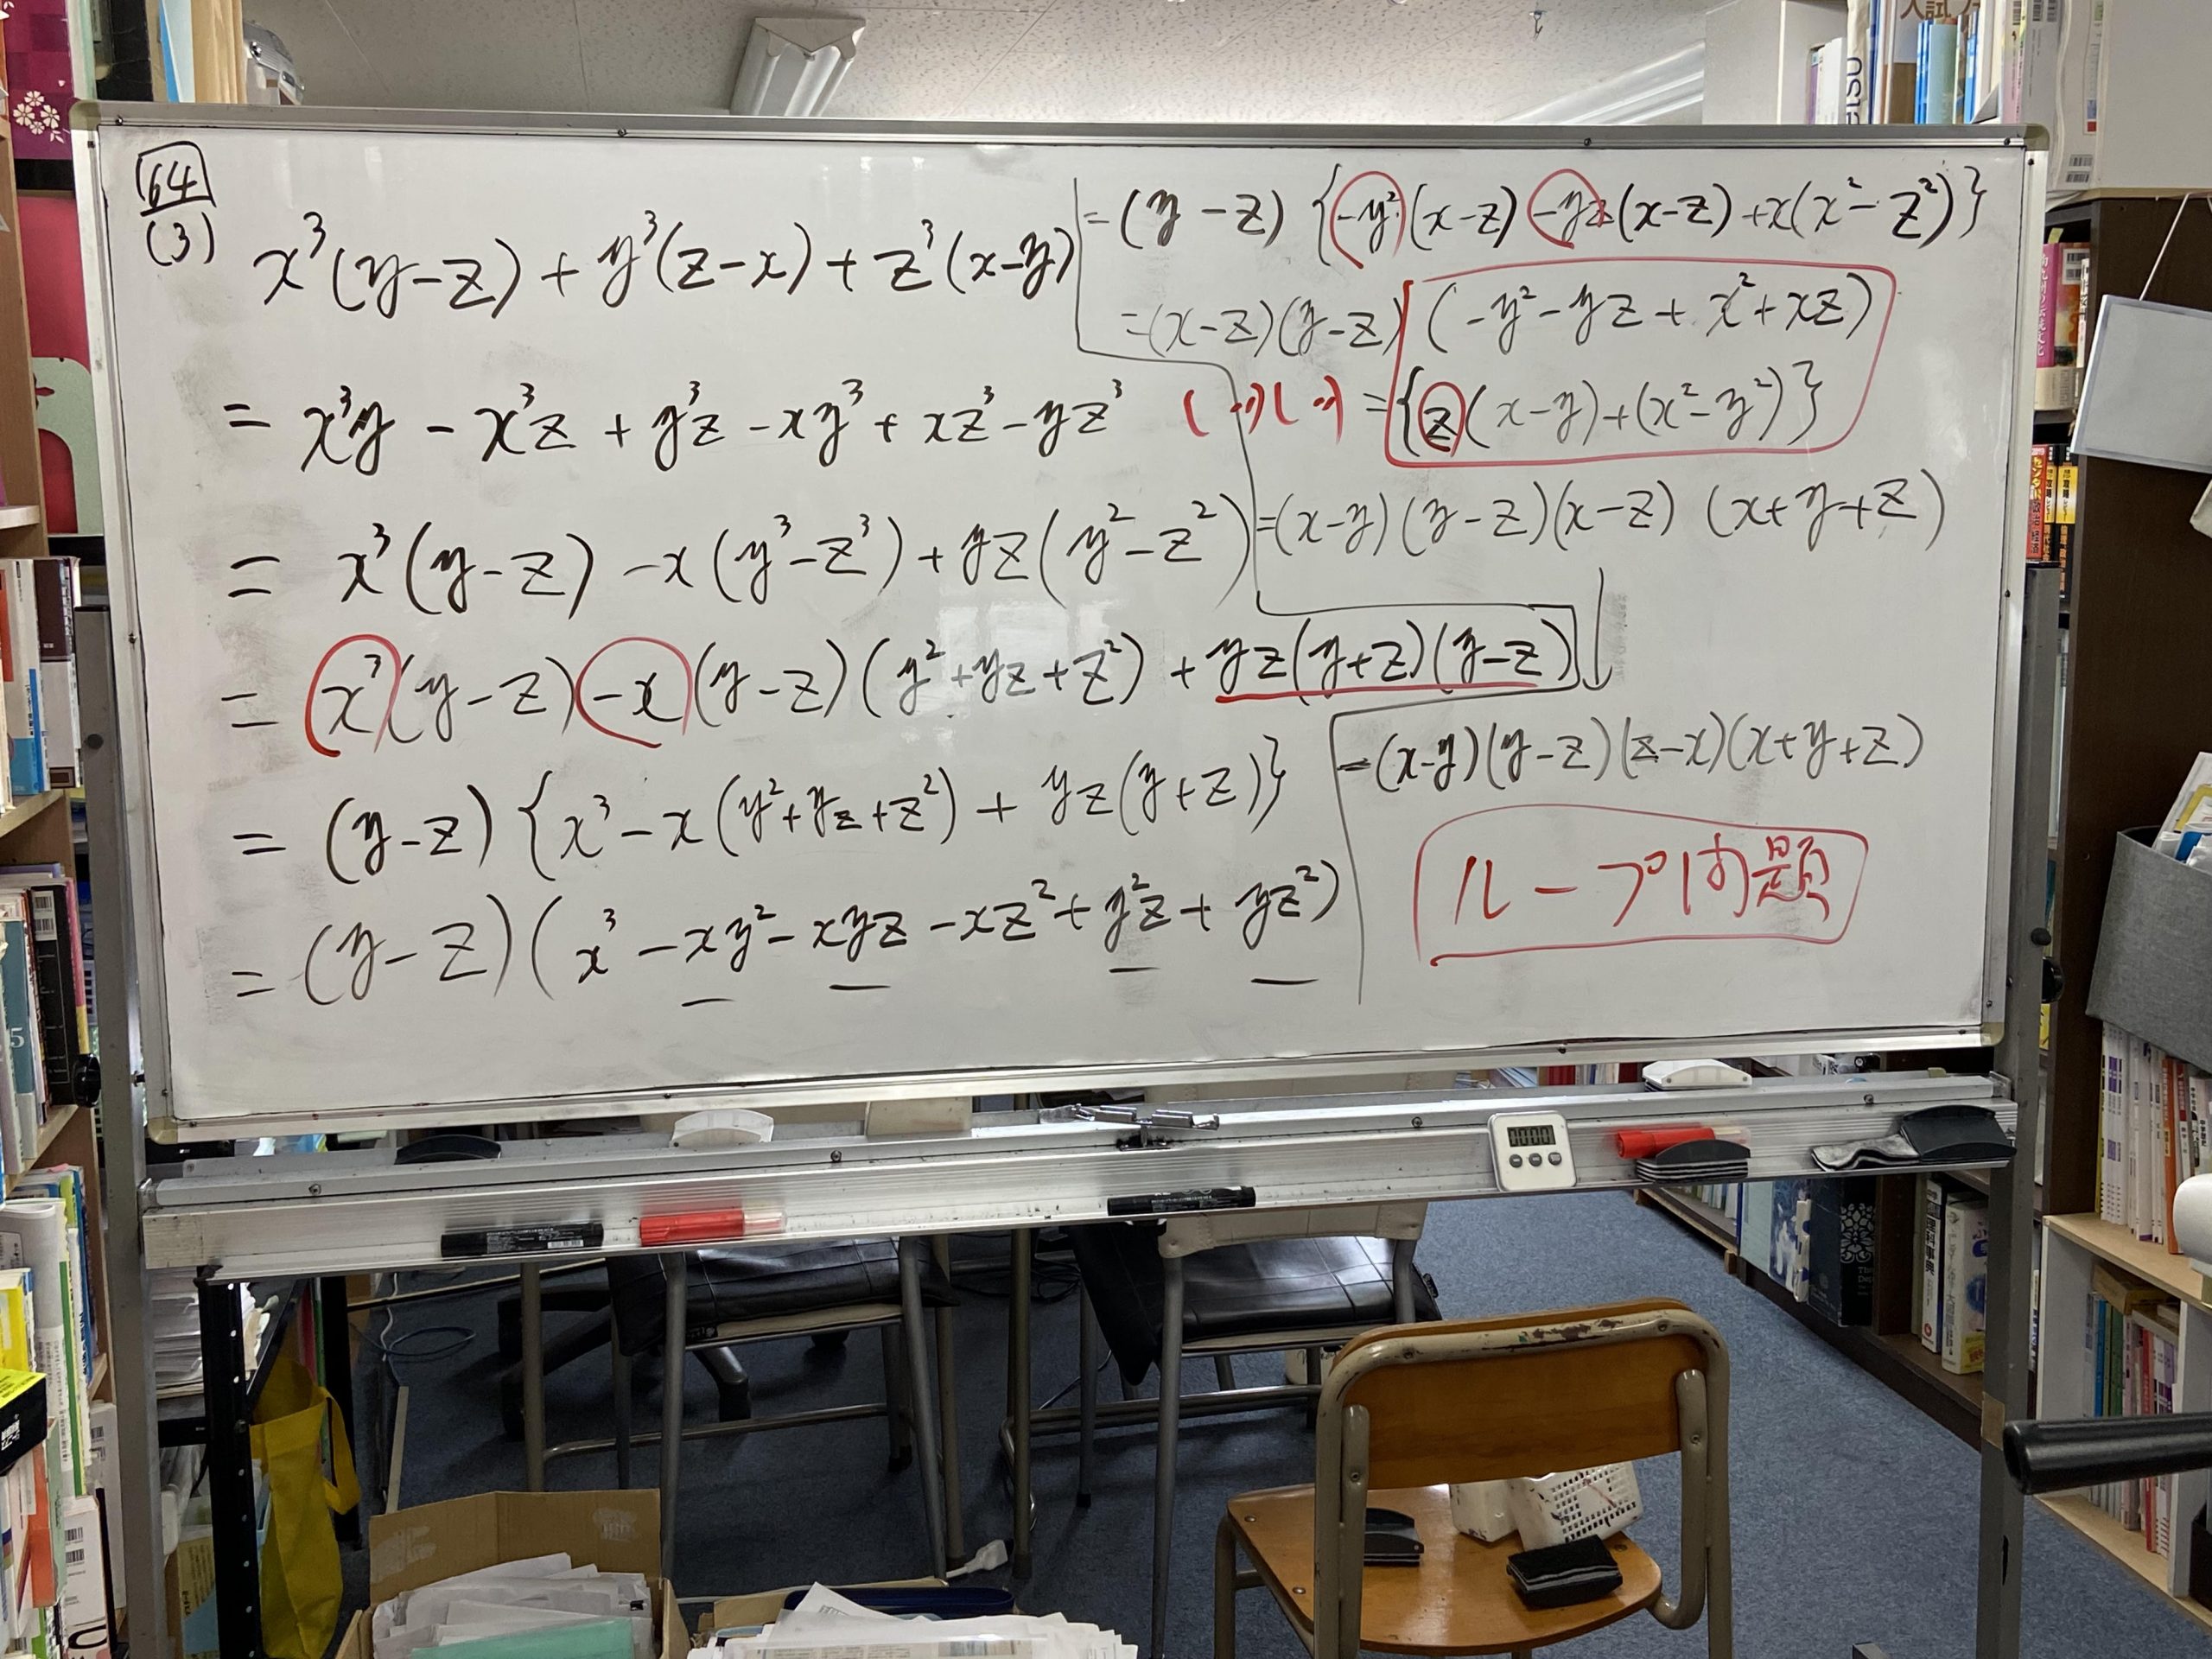 64
(3)
x³(y-z)+y³(z-x)+z³(x-y)
= x³y - x³z + y³z - xy³ + xz³ - yz³
= x³(y-z) -x(y³-z³)+yz(y²-z²)
= x³(y-z)-x(y-z)(y²+yz+z²) + yz(y+z)(y-z)
= (y-z){x³-x(y²+yz+z²)+ yz(y+z)}
= (y-z)(x³ -xy²-xyz -xz²+y²z+ yz²)
= (y-z) {-y²(x-z)-yz(x-z)+x(x²-z²)}
=(x-z)(y-z) (-y²-yz+x²+xz)
( )( ) ={z(x-y)+(x²-y²)}
=(x-y)(y-z)(x-z) (x+y+z)
↓
-(x-y)(y-z)(z-x)(x+y+z)
ループ問題
入試
センター
政治・経済